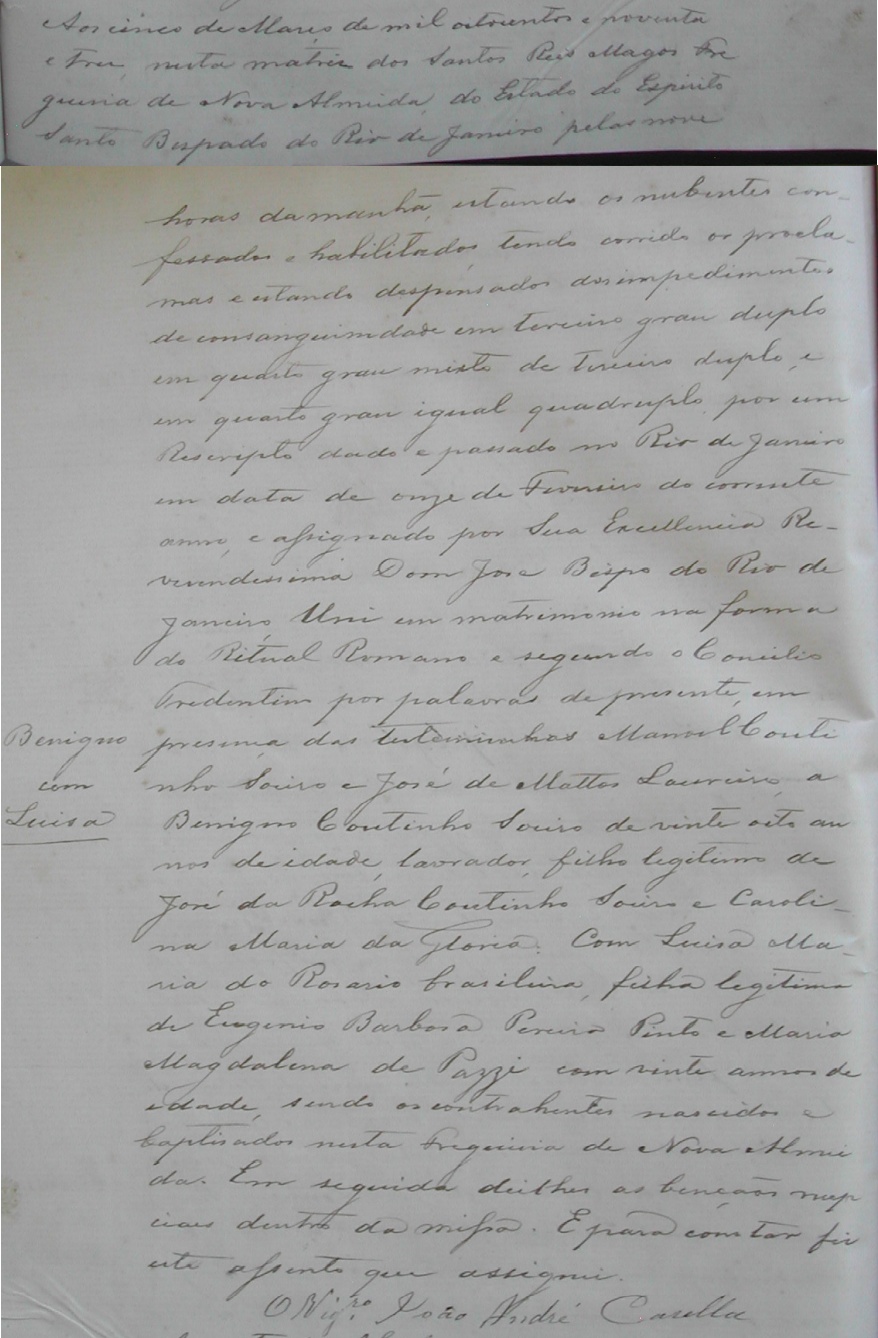 Aos cinco de Março de mil oitocentos e noventa
e trez, nesta matriz dos Santos Reis Magos Fre
guesia de Nova Almeida, do Estado do Espirito
Santo Bispado do Rio de Janeiro pelas nove
horas da manhã, estando os nubentes con-
fessados e habilitados, tendo corrido os procla-
mas e estando despensados dos impedimentos
de consanguinidade em terceiro grau duplo
em quarto grau mixto de terceiro duplo, e
em quarto grau igual quadruplo, por um
Rescripto dado e passado no Rio de Janeiro
em data de onze de Fevereiro do corrente
anno, e assignado por Sua Excellencia Re-
verendissima Dom José Bispo do Rio de
Janeiro, Uni em matrimonio na forma
do Ritual Romano e segundo o Concilio
Tredentino por palavras de presente, em
presença das testeminhas Manoel Couti
nho Soeiro e José de Mattos Loureiro, a
Benigno
com
Luisa
Benigno Coutinho Soeiro de vinte oito an
nos de idade, lavrador, filho legitimo de
José da Rocha Coutinho Soeiro e Caroli-
na Maria da Gloria. Com Luisa Ma-
ria do Rosario brasileira, filha legitima
de Eugenio Barbosa Pereira Pinto e Maria
Magdalena de Pazzi com vinte annos de
edade, sendo os contrahentes nascidos e
baptisados nesta Freguesia de Nova Almei
da. Em seguida deithes as bençãos nup
ciaes dentro da missa. E para constar fiz
este assento que assignei.
O Vigr.º João André Casella